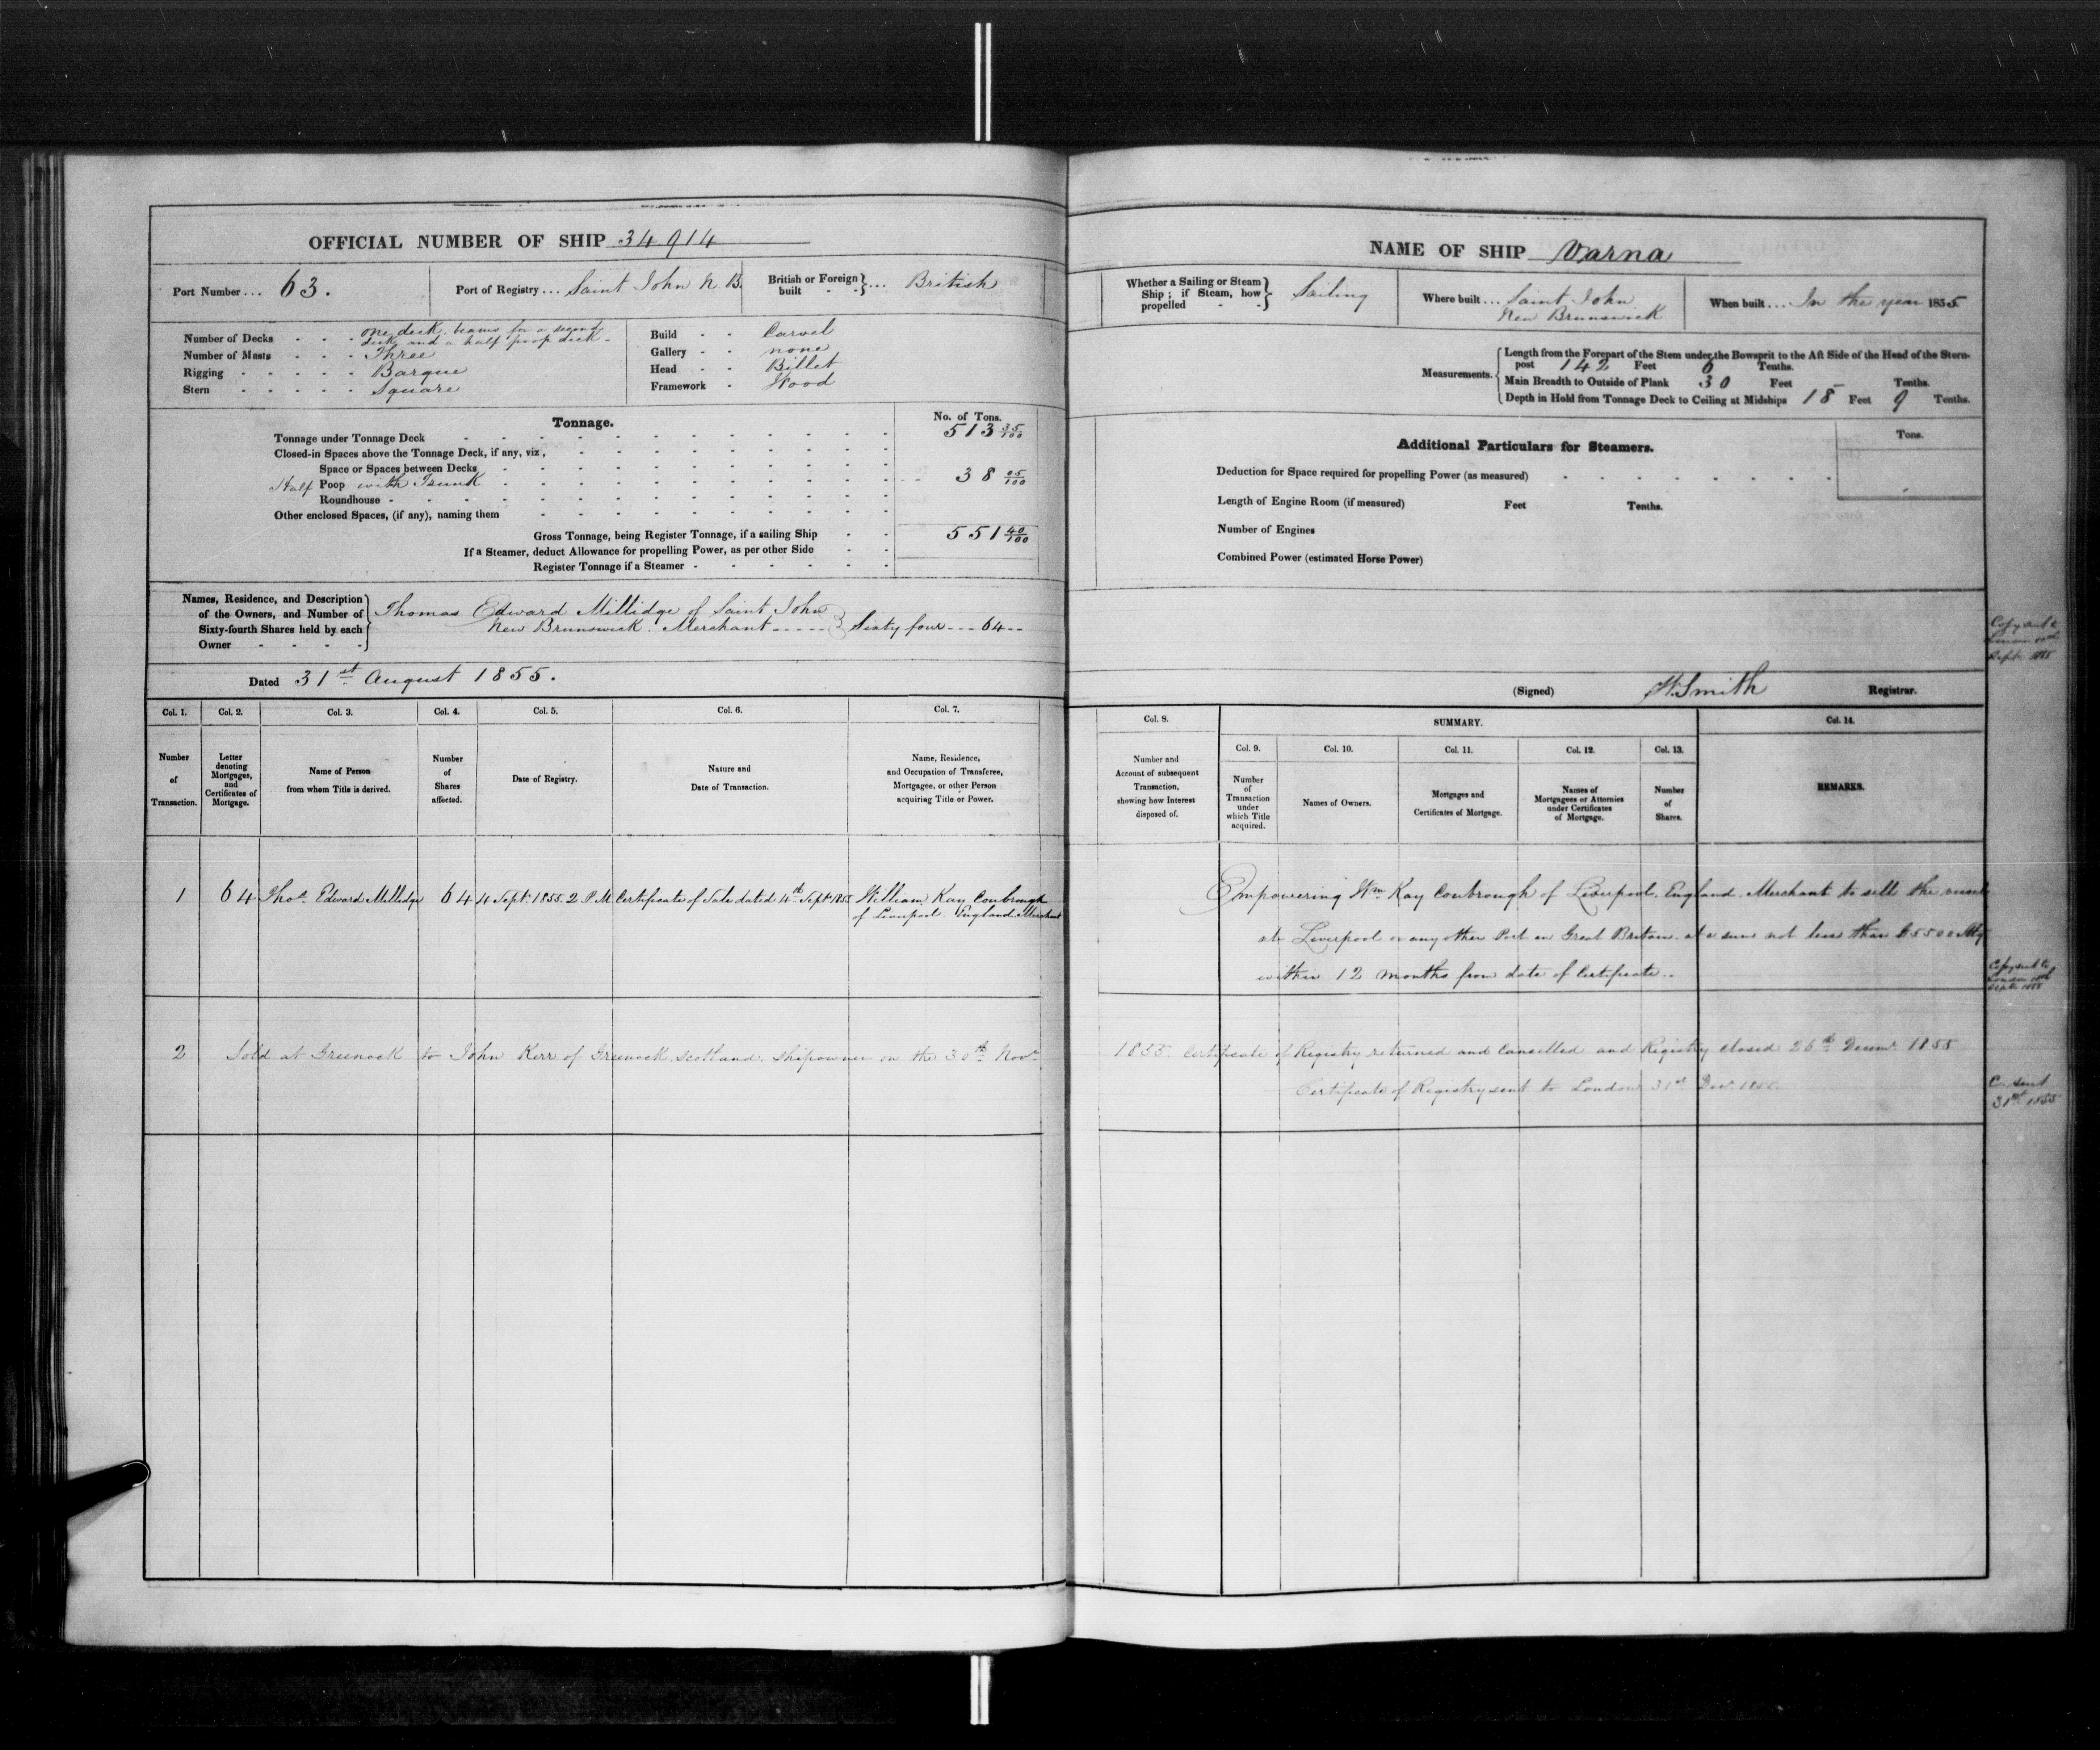 OFFICIAL NUMBER OF SHIP 34914
Port Number ... 63.
Port of Registry ... Saint John N B.
British or Foreign built - - } ... British
Number of Decks - - - One deck, beams for a second
deck and a half poop deck -
Number of Masts - - - Three
Rigging - - - - - Barque
Stern - - - - - Square
Build - - Carvel
Gallery - - none
Head - - Billet
Framework - Wood
Tonnage.
No. of Tons.
Tonnage under Tonnage Deck 513 35/100
Closed-in Spaces above the Tonnage Deck, if any, viz,
Space or Spaces between Decks
Half Poop with Trunk 38 05/100
Roundhouse
Other enclosed Spaces, (if any), naming them
Gross Tonnage, being Register Tonnage, if a sailing Ship 551 40/100
If a Steamer, deduct Allowance for propelling Power, as per other Side
Register Tonnage if a Steamer
Names, Residence, and Description
of the Owners, and Number of
Sixty-fourth Shares held by each
Owner
Thomas Edward Millidge of Saint John
New Brunswick. Merchant - - - - - } Sixty four - - - 64 - -
Dated 31st August 1855.
Col. 1.
Col. 2.
Col. 3.
Col. 4.
Col. 5.
Col. 6.
Col. 7.
Number of Transaction.
Letter denoting Mortgages, and Certificates of Mortgage.
Name of Person from whom Title is derived.
Number of Shares affected.
Date of Registry.
Nature and Date of Transaction.
Name, Residence, and Occupation of Transferee, Mortgagee, or other Person acquiring Title or Power.
1 64 Thos. Edward Millidge 64 4 Sept. 1855. 2 P.M. Certificate of Sale dated 4th Sept. 1855 William Kay Conbrough
of Liverpool England Merchant
2 Sold at Greenock to John Kerr of Greenock Scotland. Shipowner on the 30th Novr.
NAME OF SHIP Varna
Whether a Sailing or Steam
Ship ; if Steam, how
propelled - - } Sailing
Where built ... Saint John
New Brunswick
When built .... In the year 1855
Measurements.
Length from the Forepart of the Stem under the Bowsprit to the Aft Side of the Head of the Stern-
post 142 Feet 6 Tenths.
Main Breadth to Outside of Plank 30 Feet Tenths.
Depth in Hold from Tonnage Deck to Ceiling at Midships 18 Feet 9 Tenths.
Additional Particulars for Steamers.
Tons.
Deduction for Space required for propelling Power (as measured)
Length of Engine Room (if measured) Feet Tenths.
Number of Engines
Combined Power (estimated Horse Power)
Copy sent to
London
Sept. 1855
(Signed) W. Smith Registrar.
Col. 8.
SUMMARY.
Col. 14.
Col. 9.
Col. 10.
Col. 11.
Col. 12.
Col. 13.
Number and Account of subsequent Transaction, showing how Interest disposed of.
Number of Transaction under which Title acquired.
Names of Owners.
Mortgages and Certificates of Mortgage.
Names of Mortgagees or Attornies under Certificates of Mortgage.
Number of Shares.
REMARKS.
Empowering Wm. Kay Conbrough of Liverpool. England. Merchant to sell the vessel
at Liverpool or any other Port in Great Britain at a sum not less than £5500 Stg
within 12 months from date of Certificate..
Copy sent to
London
Sept. 1855
1855. Certificate of Registry returned and Cancelled and Registry closed 26th Decemr. 1855
Certificate of Registry sent to London 31st Decr. 1855.
C. sent
31st 1855